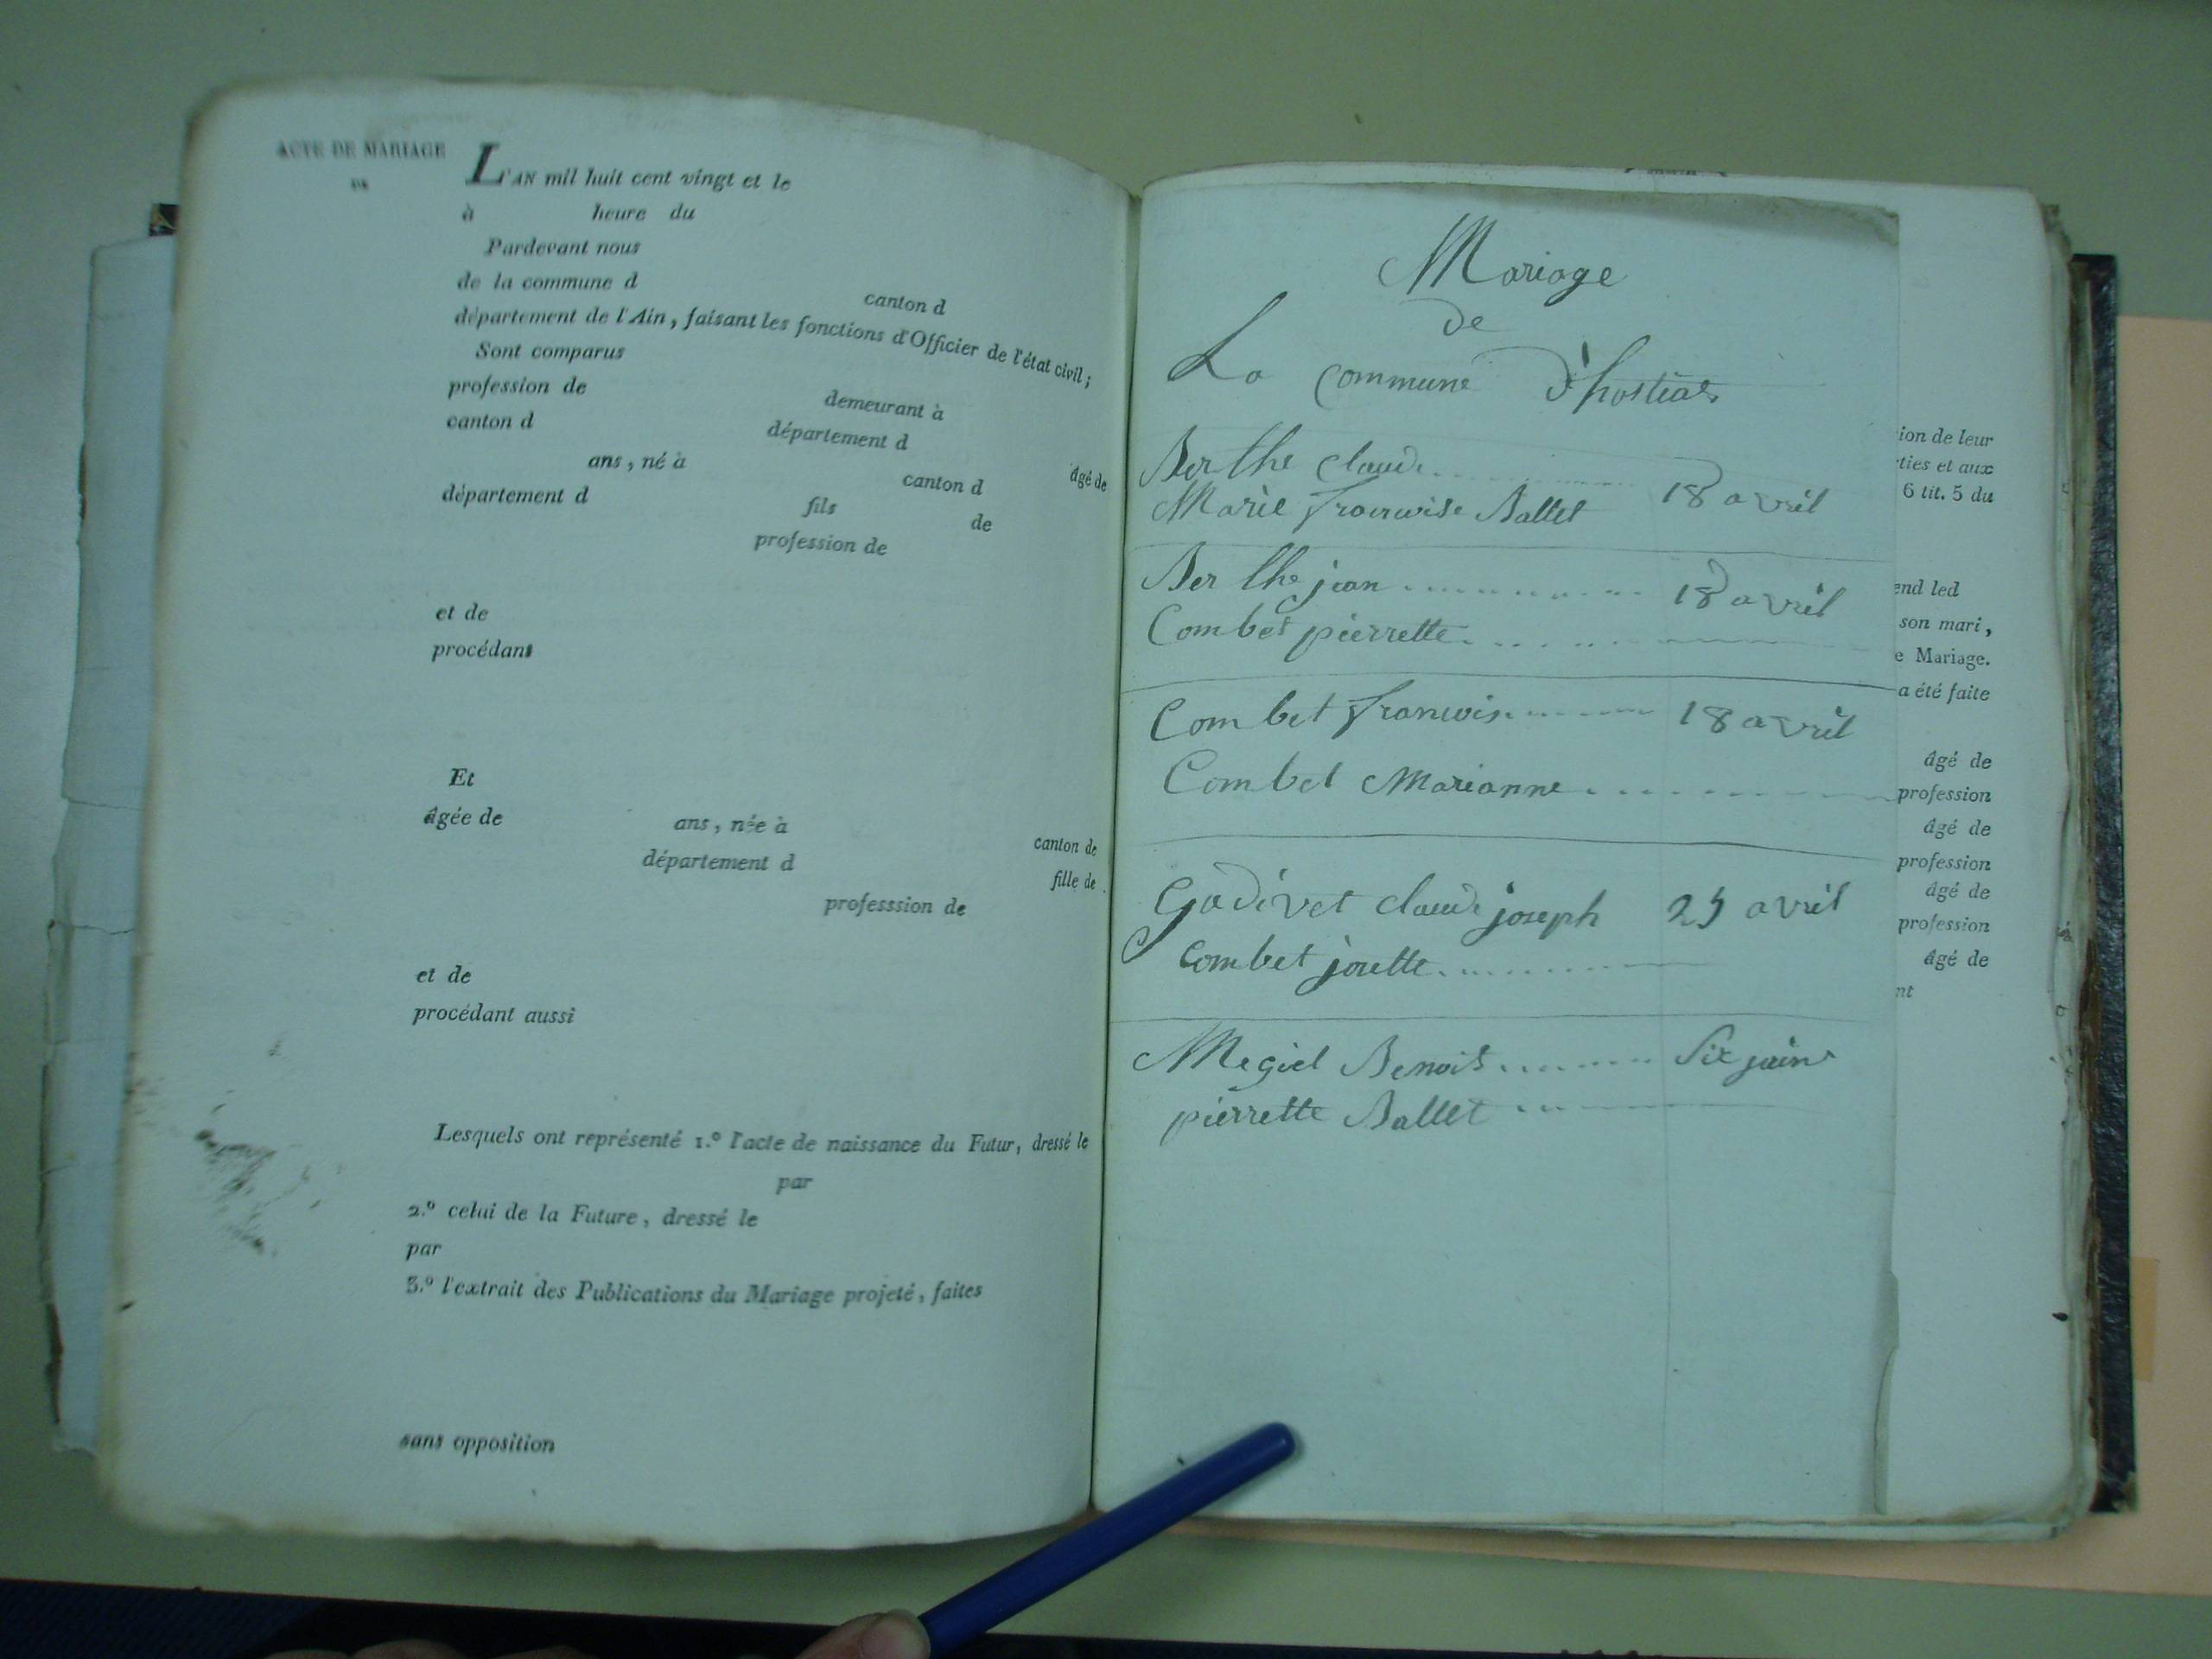 ACTE DE MARIAGE
DE
L'AN mil huit cent vingt et le
à heure du
Pardevant nous
de la commune d canton d
département de l'Ain, faisant les fonctions d'Officier de l'état civil;
Sont comparus
profession de demeurant à
canton d département d âgé de
ans, né à canton d
département d fils de
profession de
et de
procédant
Et
âgée de ans, née à canton de
département d fille de
professsion de
et de
procédant aussi
Lesquels ont représenté 1.º l'acte de naissance du Futur, dressé le
par
2.º celui de la Future, dressé le
par
3.º l'extrait des Publications du Mariage projeté, faites
sans opposition
Mariage
de
La commune d'hostias
Berthe Claude 18 avril
Marie francoise Ballet
Berthe jean 18 avril
Combet pierrette
Combet francois 18 avril
Combet Marianne
Godivet claude joseph 25 avril
Combet josette
Megiel Benoit Six juin
pierrette Ballet
ion de leur
ties et aux
6 tit. 5 du
end led
son mari,
e Mariage.
a été faite
âgé de
profession
âgé de
profession
âgé de
profession
âgé de
nt